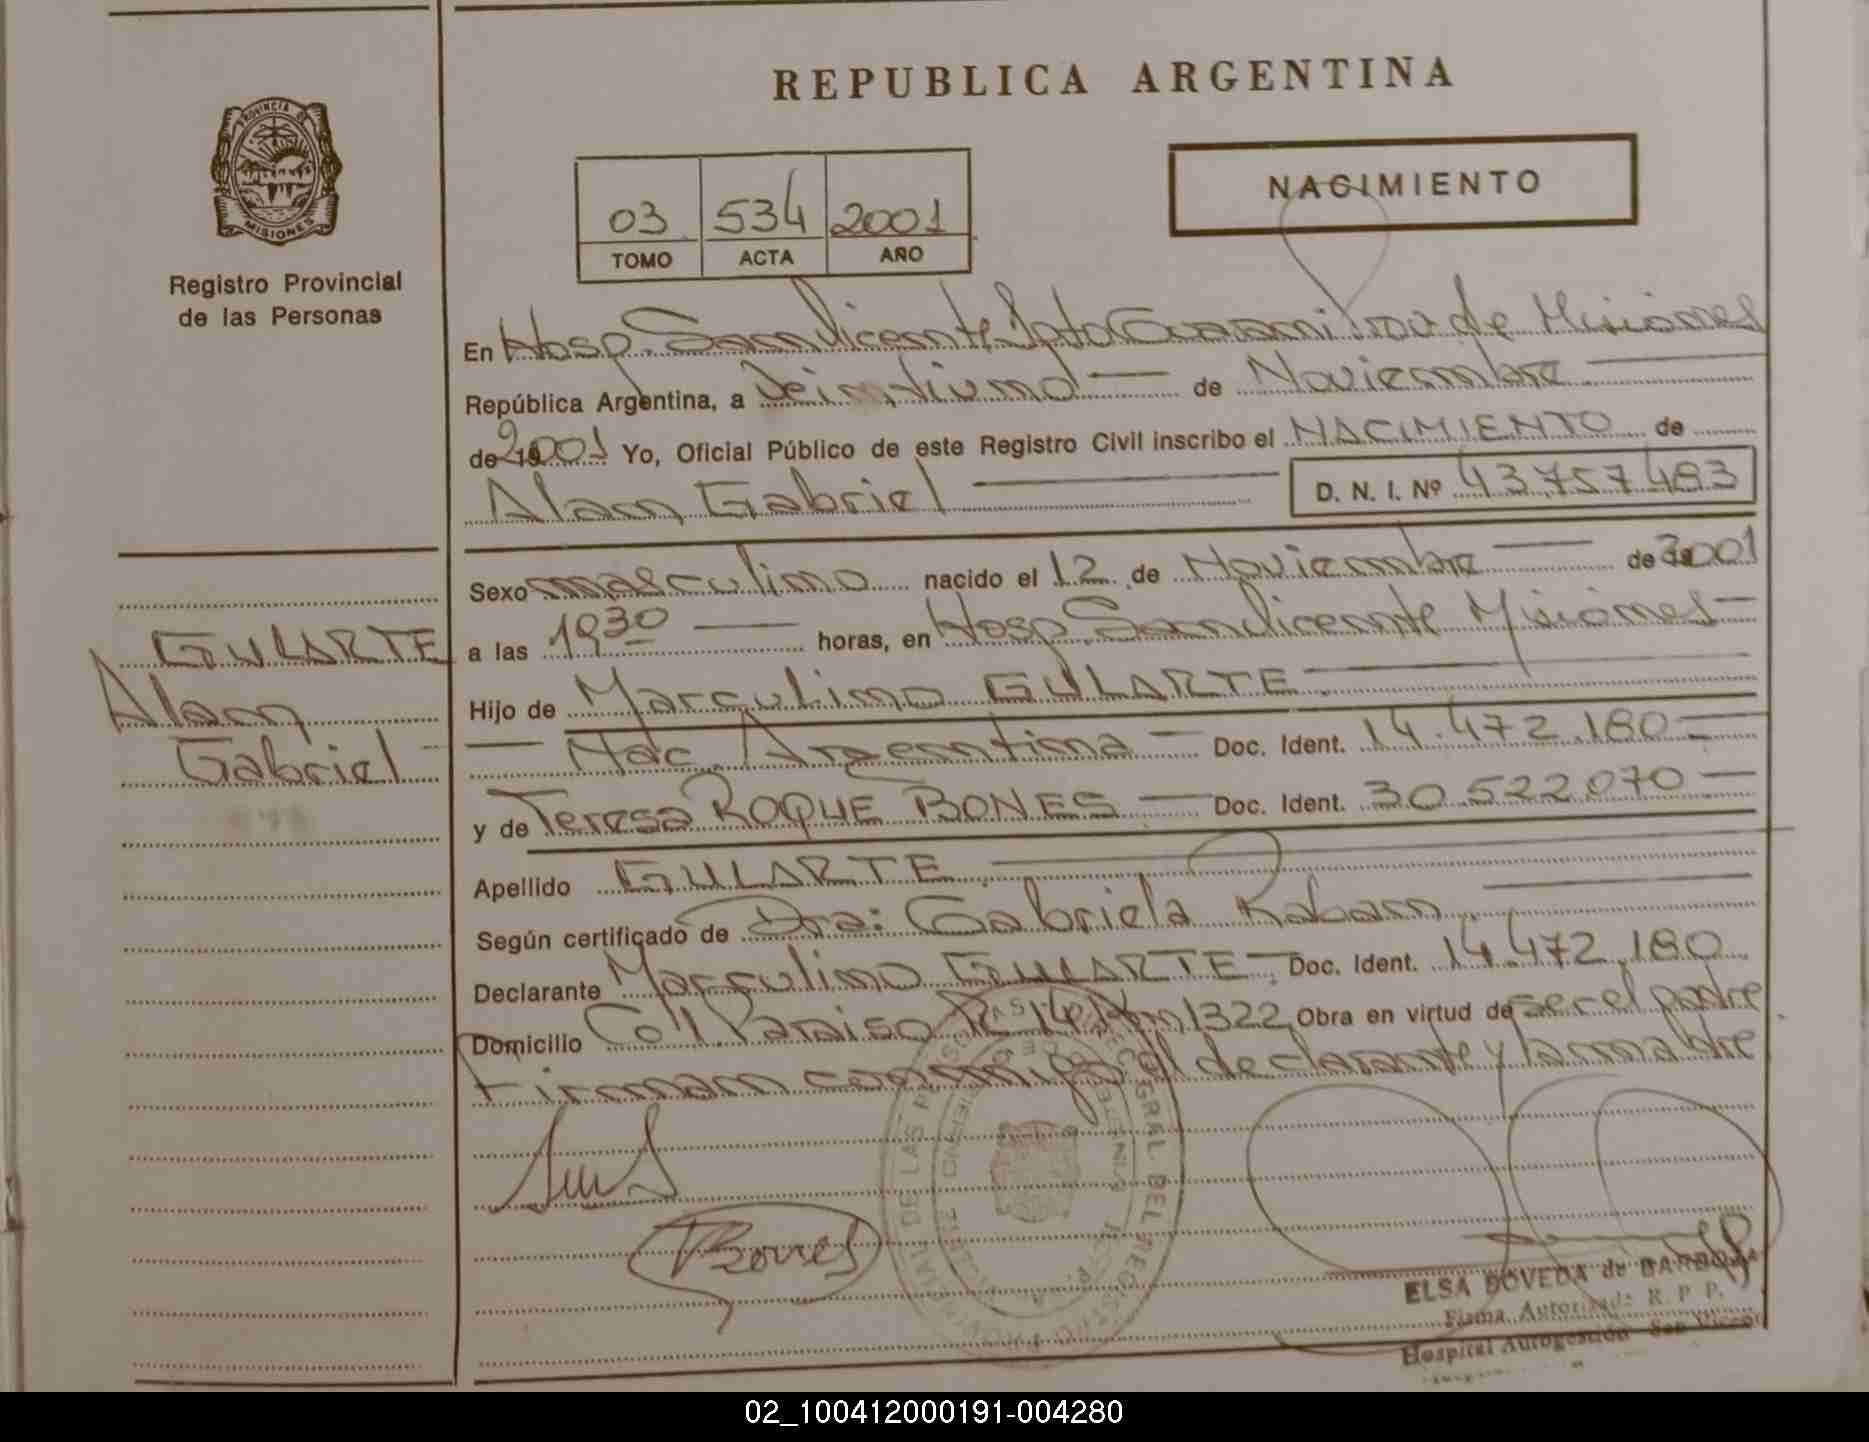 REPUBLICA ARGENTINA
PROVINCIA DE
MISIONES
Registro Provincial
de las Personas
03 534 2001
TOMO ACTA AÑO
NACIMIENTO
En Hosp. San Vicente Dpto Guarani Prov de Misiones
República Argentina, a Veintiuno de Noviembre
de 19 2001 Yo, Oficial Público de este Registro Civil inscribo el NACIMIENTO de
Alan Gabriel D. N. I. Nº 43.757.483
Sexo masculino nacido el 12 de Noviembre de 2001
a las 1930 horas, en Hosp. San Vicente Misiones
Hijo de Marculino GULARTE
Nac. Argentina Doc. Ident. 14.472.180
y de Teresa ROQUE BONES Doc. Ident. 30.522.070
Apellido GULARTE
Según certificado de Dra: Gabriela Raban
Declarante Marculino GULARTE Doc. Ident. 14.472.180
Domicilio Col. Paraiso R 14 Km 1322 Obra en virtud de ser el padre
Firman conmigo el declarante y la madre
GULARTE
Alan
Gabriel
Bones
GRAL DEL REGISTRO PROVINCIAL DE LAS
ELSA BOVEDA de BARBOZA
Firma Autorizada R. P. P.
Hospital Autogestión San Vicente
02_100412000191-004280